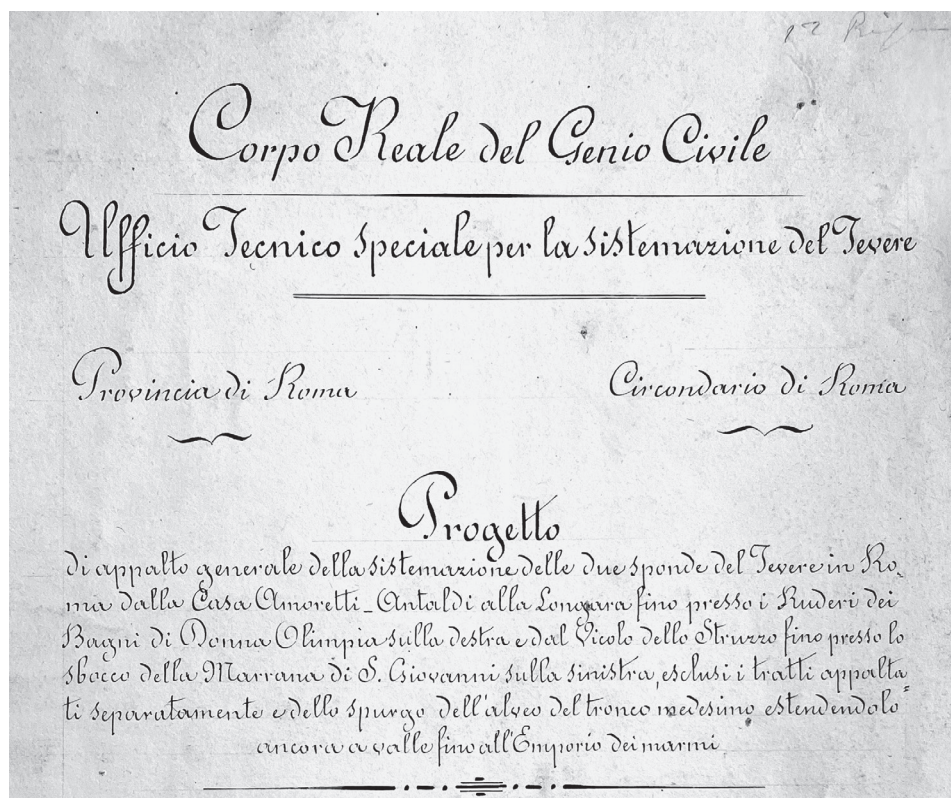 Corpo Reale del Genio Civile
Ufficio Tecnico speciale per la sistemazione del Tevere
Provincia di Roma
Circondario di Roma
Progetto
di appalto generale della sistemazione delle due sponde del Tevere in Ro-
ma dalla Casa Amoretti-Antaldi alla Longara fino presso i Ruderi dei
Bagni di Donna Olimpia sulla destra e dal Vicolo dello Struzzo fino presso lo
sbocco della Marrana di S. Giovanni sulla sinistra, esclusi i tratti appalta=
ti separatamente e dello spurgo dell'alveo del tronco medesimo estendendolo
ancora a valle fino all'Emporio dei marmi